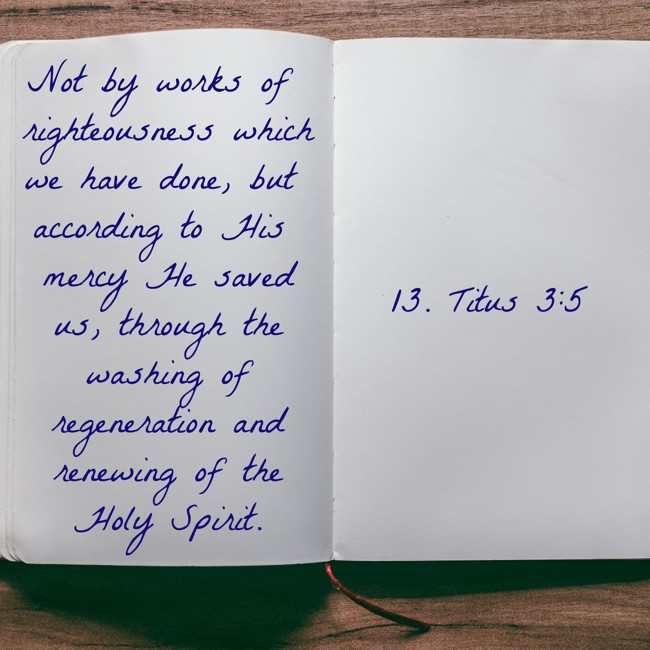 Not by works of
righteousness which
we have done, but
according to His
mercy He saved
us, through the
washing of
regeneration and
renewing of the
Holy Spirit.
13. Titus 3:5